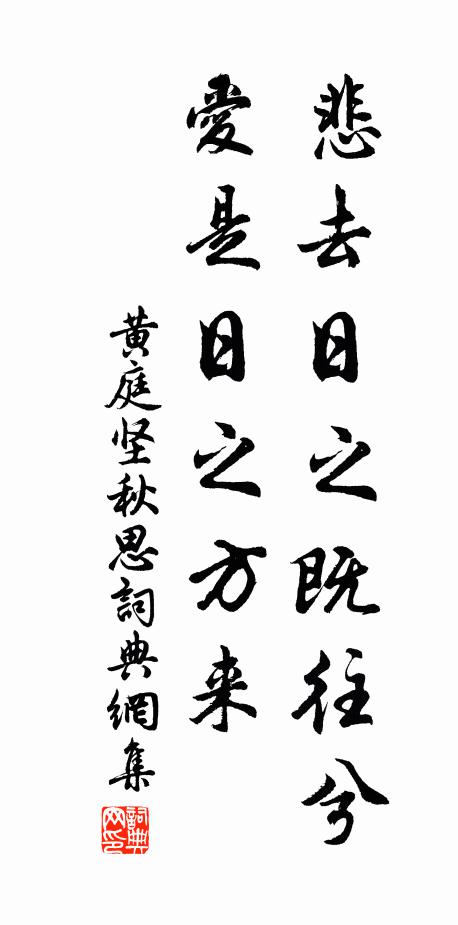 悲去日之既往兮
愛是日之方来
黄庭坚秋思詞典網集
詞典网印